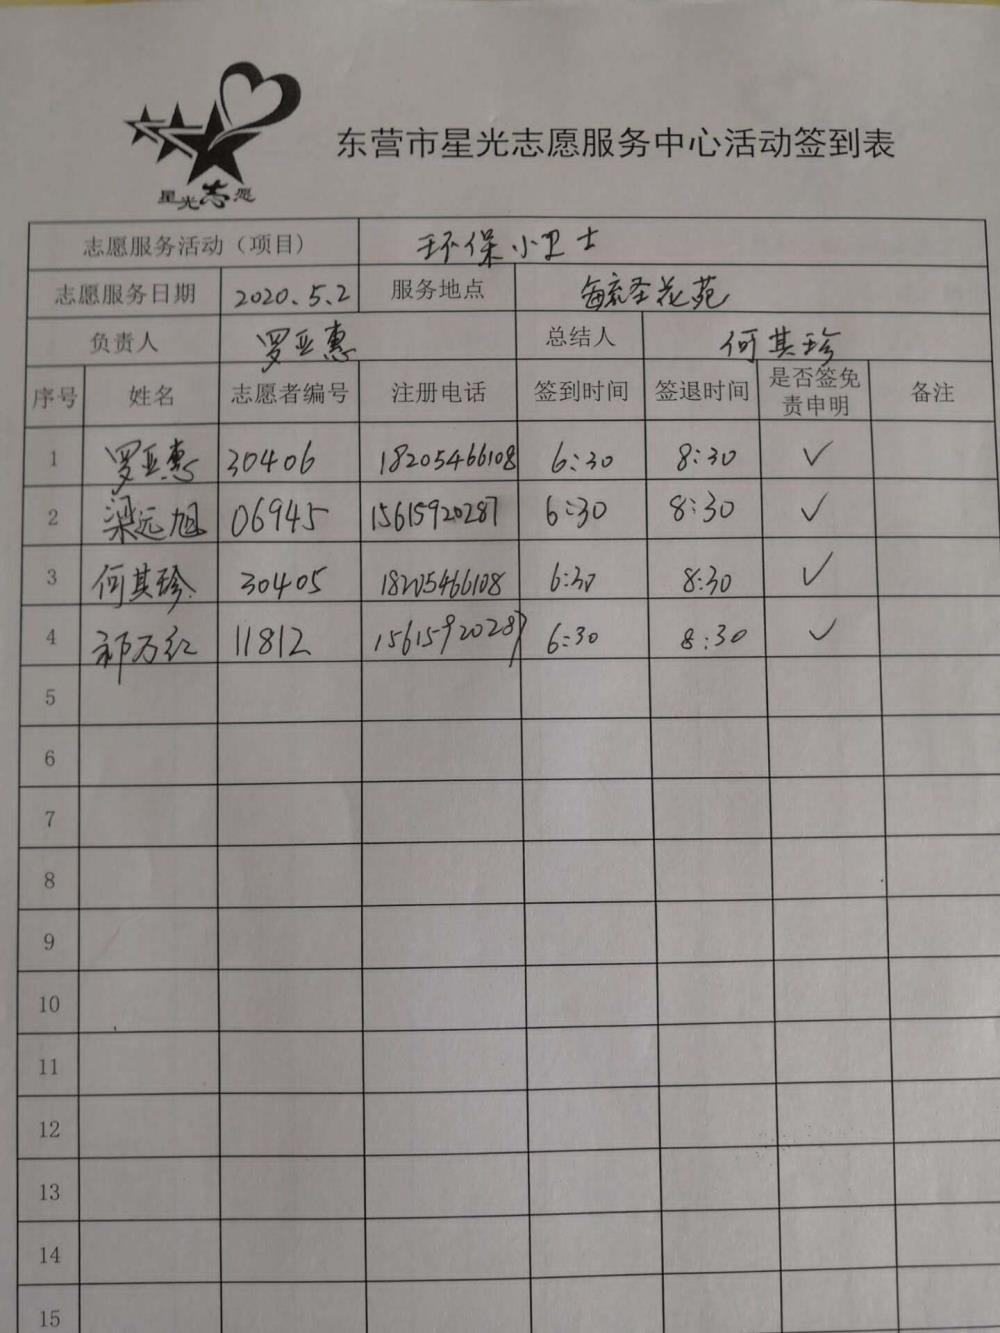 星光志愿
东营市星光志愿服务中心活动签到表
志愿服务活动（项目） 环保小卫士
志愿服务日期 2020.5.2 服务地点 圣花苑
负责人 罗亚惠 总结人 何其珍
序号 姓名 志愿者编号 注册电话 签到时间 签退时间 是否签免责申明 备注
1 罗亚惠 30406 18205466108 6:30 8:30 ✓
2 梁远旭 06945 15615920287 6:30 8:30 ✓
3 何其珍 30405 18205466108 6:30 8:30 ✓
4 祁万红 11812 15615920287 6:30 8:30 ✓
5
6
7
8
9
10
11
12
13
14
15